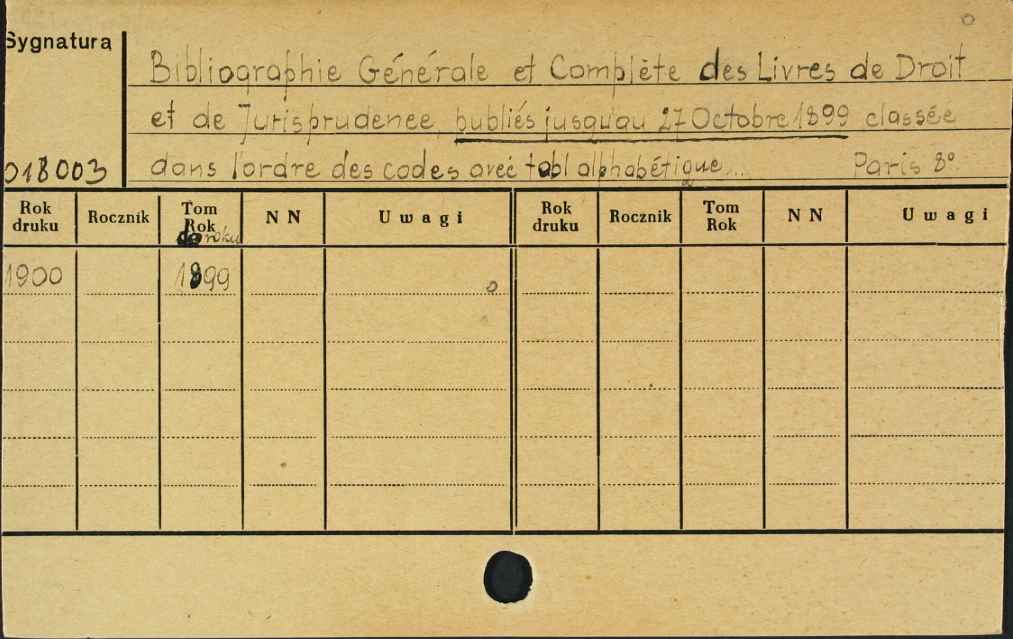 Sygnatura
Bibliographie Générale et Complète des Livres de Droit
et de Jurisprudenee publiés jusqu'au 27 Octobre 1899 classée
018003 dans l'ordre des codes avec tabl alphabétique... Paris 8°
Rok druku Rocznik Tom Rok do roku NN Uwagi Rok druku Rocznik Tom Rok NN Uwagi
1900 1899